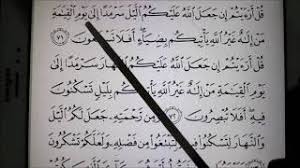 قُلْ أَرَءَيْتُمْ إِن جَعَلَ ٱللَّهُ عَلَيْكُمُ ٱلَّيْلَ سَرْمَدًا إِلَىٰ يَوْمِ ٱلْقِيَٰمَةِ
مَنْ إِلَٰهٌ غَيْرُ ٱللَّهِ يَأْتِيكُم بِضِيَآءٍ أَفَلَا تَسْمَعُونَ ٧١
قُلْ أَرَءَيْتُمْ إِن جَعَلَ ٱللَّهُ عَلَيْكُمُ ٱلنَّهَارَ سَرْمَدًا إِلَىٰ
يَوْمِ ٱلْقِيَٰمَةِ مَنْ إِلَٰهٌ غَيْرُ ٱللَّهِ يَأْتِيكُم بِلَيْلٍ تَسْكُنُونَ
فِيهِ أَفَلَا تُبْصِرُونَ ٧٢ وَمِن رَّحْمَتِهِۦ جَعَلَ لَكُمُ ٱلَّيْلَ
وَٱلنَّهَارَ لِتَسْكُنُوا۟ فِيهِ وَلِتَبْتَغُوا۟ مِن فَضْلِهِۦ وَلَعَلَّكُمْ تَشْكُرُونَ